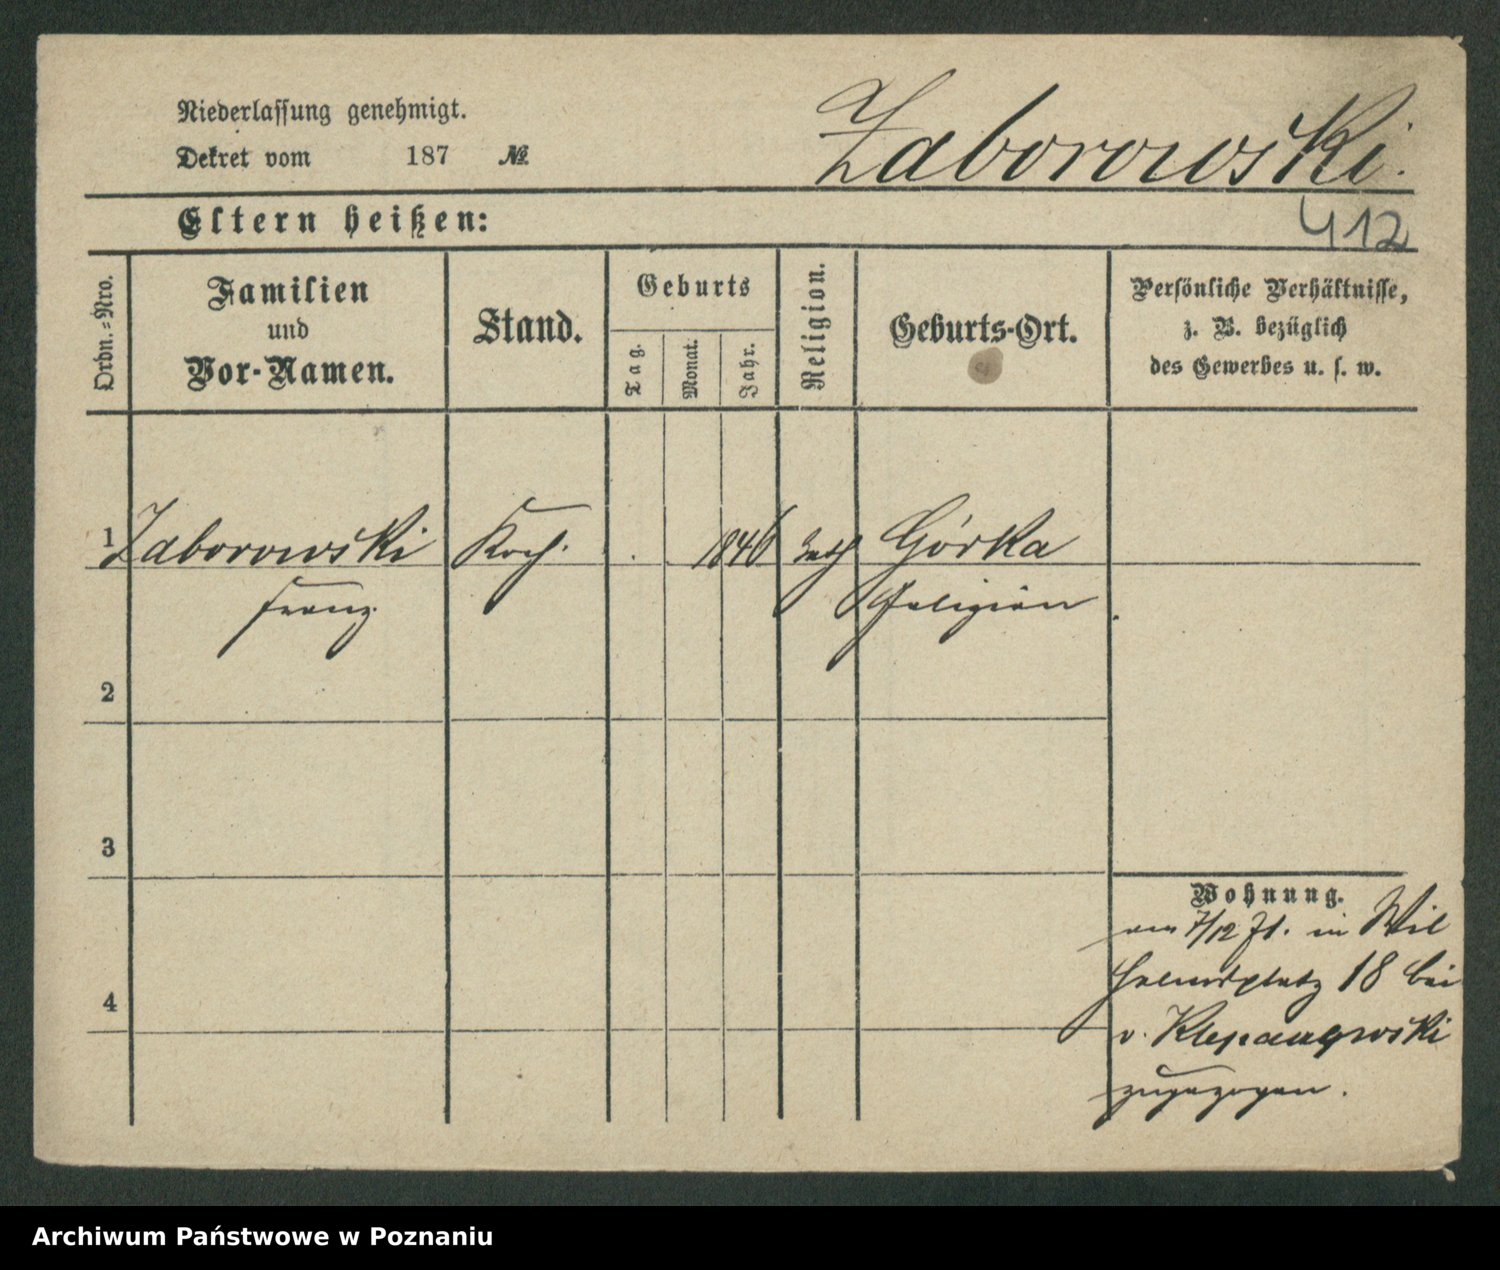 Niederlassung genehmigt.
Dekret vom 187 №
Zaborowski.
Eltern heißen:
412
Ordn.=Nro.
Familien
und
Vor-Namen.
Stand.
Geburts
Tag.
Monat.
Jahr.
Religion.
Geburts-Ort.
Persönliche Verhältnisse,
z. B. bezüglich
des Gewerbes u. s. w.
1 Zaborowski Koch. 1846 kath Górka
Franz.
2
3
Wohnung.
am 7/12 71. in Wil
helmsplatz 18 bei
4
v.
zugezogen.
Archiwum Państwowe w Poznaniu